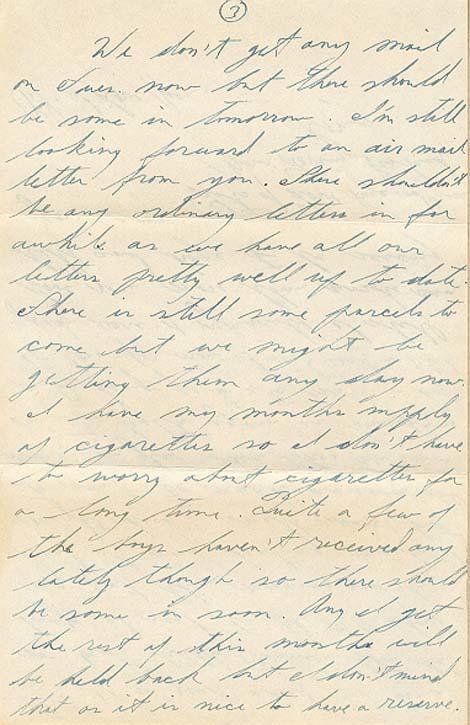 3
We don't get any mail
on Tues. now but there should
be some in tomorrow. I'm still
looking forward to an air mail
letter from you. There shouldn't
be any ordinary letters in for
awhile as we have all our
letters pretty well up to date.
There is still some parcels to
come but we might be
getting them any day now.
I have my months supply
of cigarettes so I don't have
to worry about cigarettes for
a long time. Quite a few of
the boys haven't received any
lately though so there should
be some in soon. Any I get
the rest of this months will
be held back but I don't mind
that as it is nice to have a reserve.